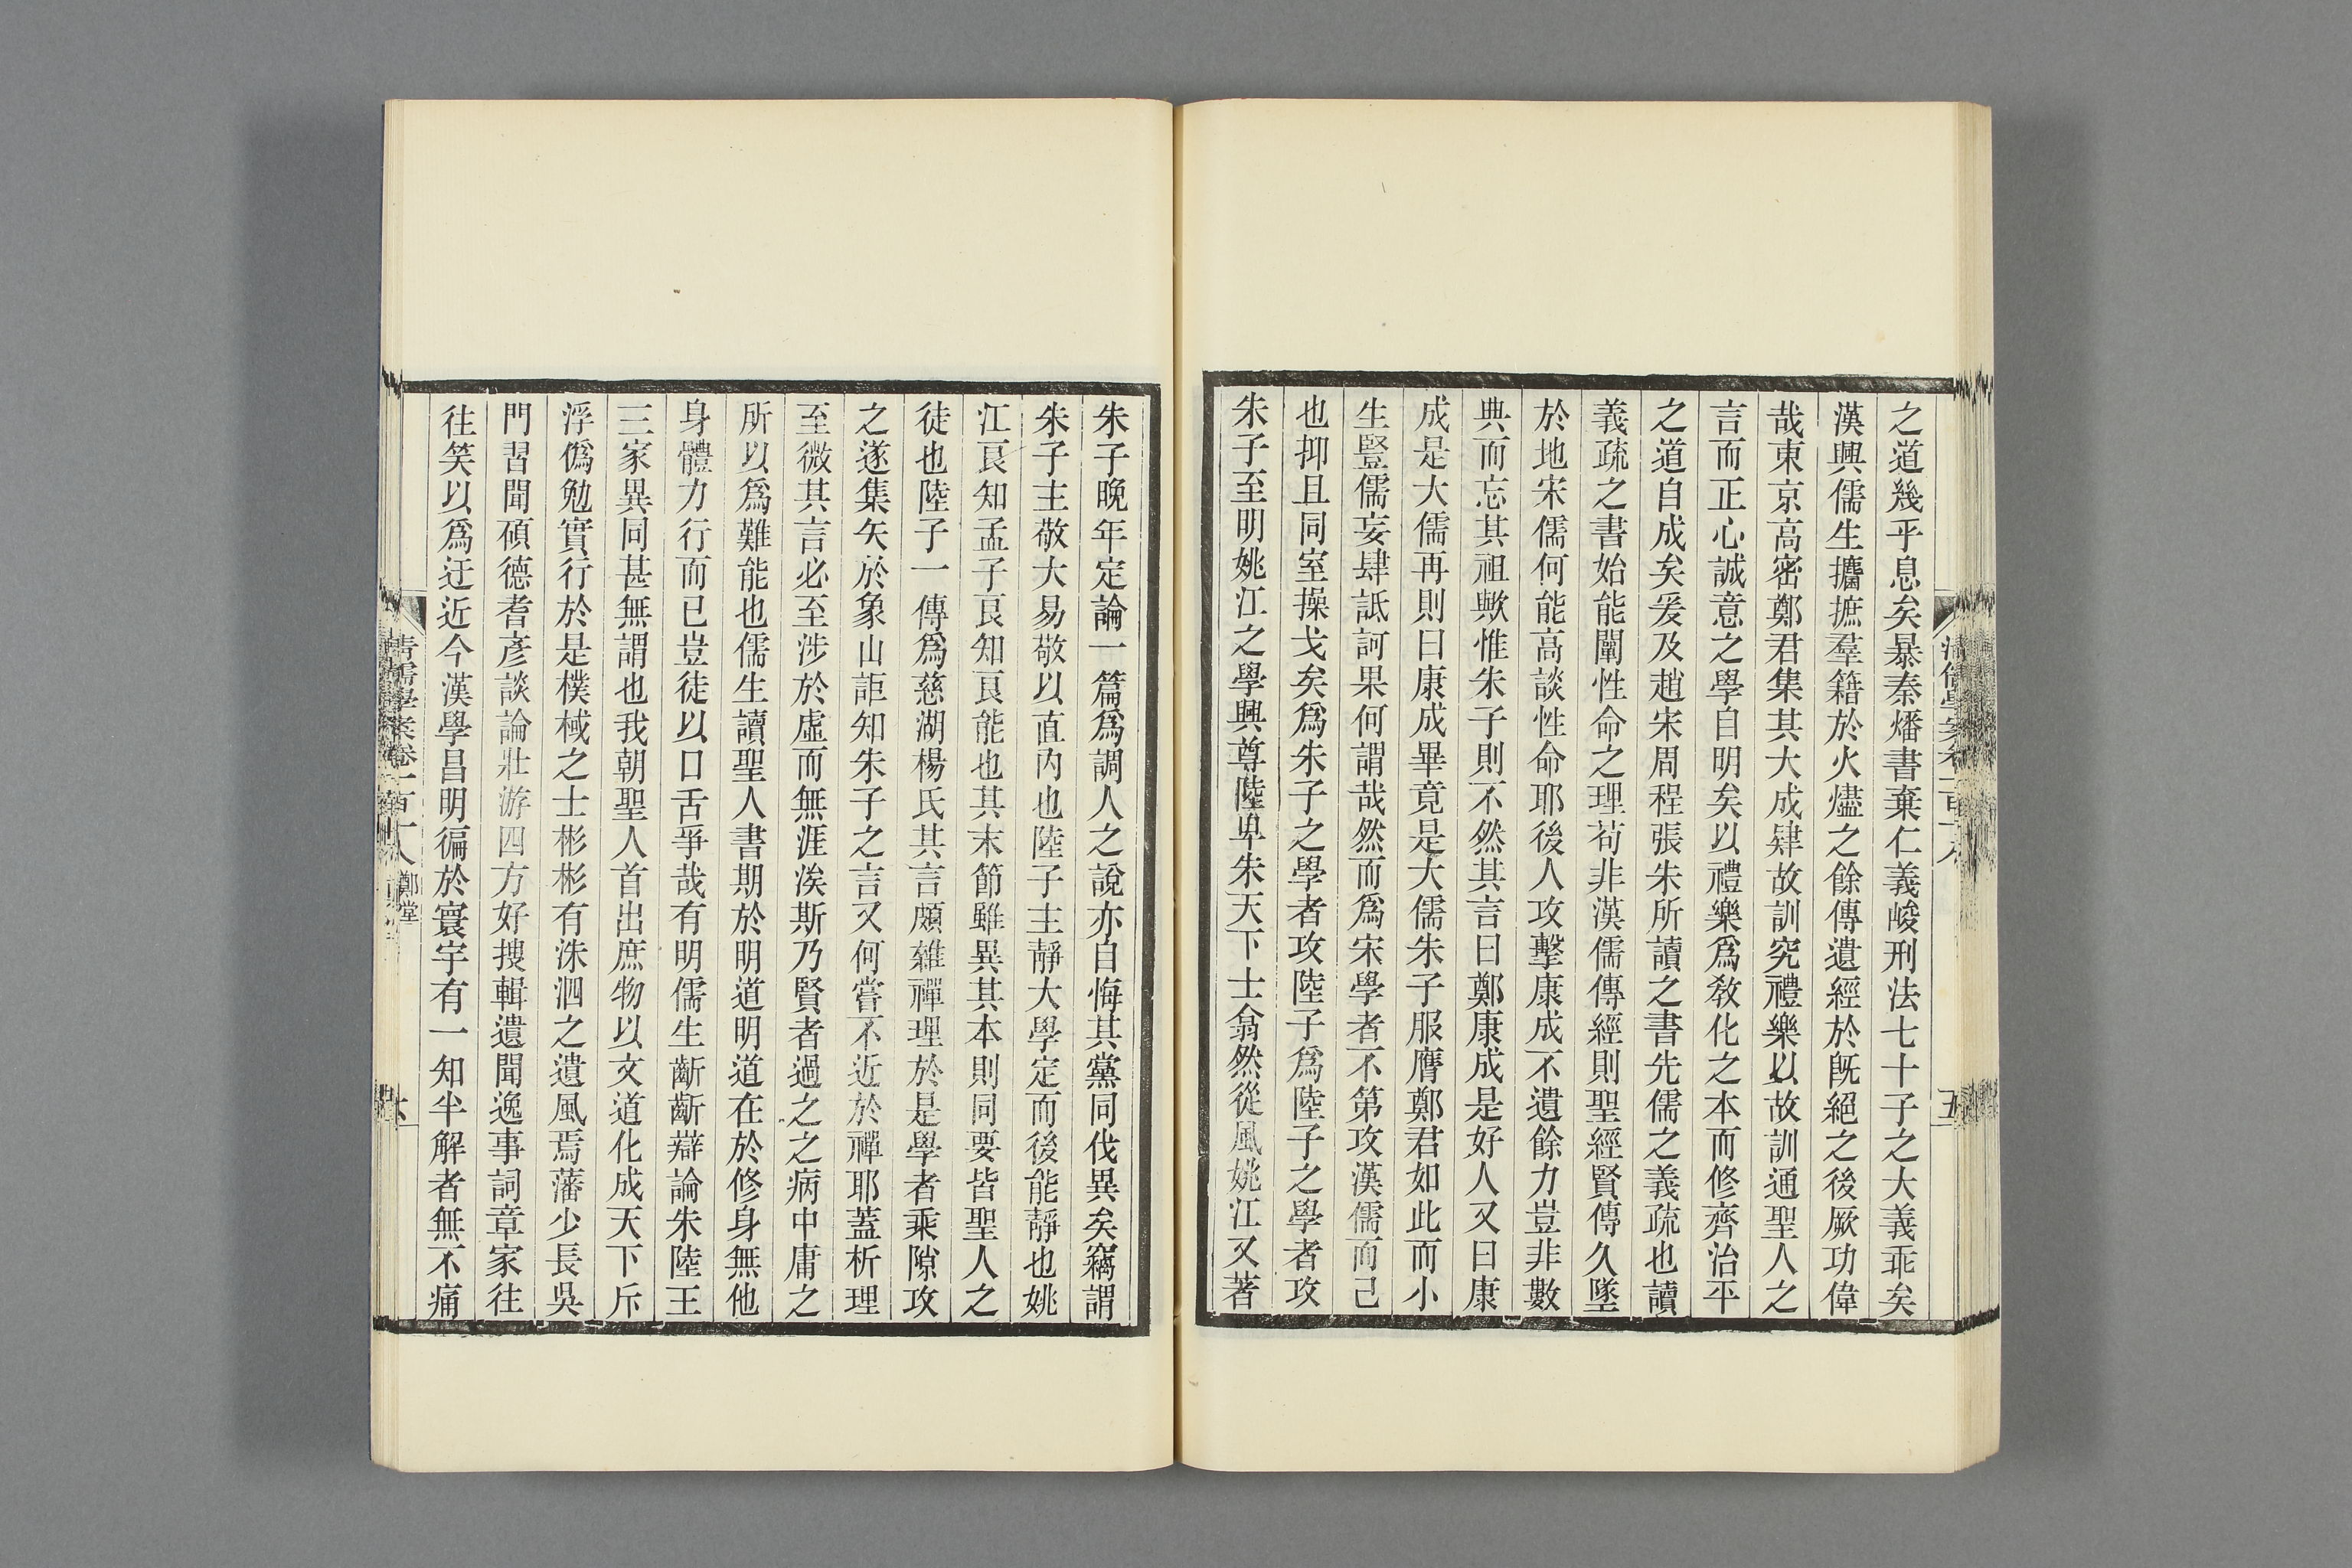 之道幾乎息矣暴秦燔書棄仁義峻刑法七十子之大義乖矣
漢興儒生攟摭羣籍於火燼之餘傳遺經於旣絕之後厥功偉
哉東京高密鄭君集其大成肄故訓究禮樂以故訓通聖人之
言而正心誠意之學自明矣以禮樂爲敎化之本而修齊治平
之道自成矣爰及趙宋周程張朱所讀之書先儒之義疏也讀
義疏之書始能闡性命之理苟非漢儒傳經則聖經賢傳久墜
於地宋儒何能高談性命耶後人攻擊康成不遺餘力豈非數
典而忘其祖歟惟朱子則不然其言曰鄭康成是好人又曰康
成是大儒再則曰康成畢竟是大儒朱子服膺鄭君如此而小
生豎儒妄肆詆訶果何謂哉然而爲宋學者不第攻漢儒而己
也抑且同室操戈矣爲朱子之學者攻陸子爲陸子之學者攻
朱子至明姚江之學興尊陸卑朱天下士翕然從風姚江又著
朱子晚年定論一篇爲調人之說亦自悔其黨同伐異矣竊謂
朱子主敬大易敬以直內也陸子主靜大學定而後能靜也姚
江良知孟子良知良能也其末節雖異其本則同要皆聖人之
徒也陸子一傳爲慈湖楊氏其言頗雜禪理於是學者乘隙攻
之遂集矢於象山詎知朱子之言又何嘗不近於禪耶蓋析理
至微其言必至涉於虛而無涯涘斯乃賢者過之之病中庸之
所以爲難能也儒生讀聖人書期於明道明道在於修身無他
身體力行而已豈徒以口舌爭哉有明儒生齗齗辯論朱陸王
三家異同甚無謂也我朝聖人首出庶物以文道化成天下斥
浮僞勉實行於是樸棫之士彬彬有洙泗之遺風焉藩少長吳
門習聞碩德耆彥談論壯游四方好搜輯遺聞逸事詞章家往
往笑以爲迂近今漢學昌明徧於寰宇有一知半解者無不痛